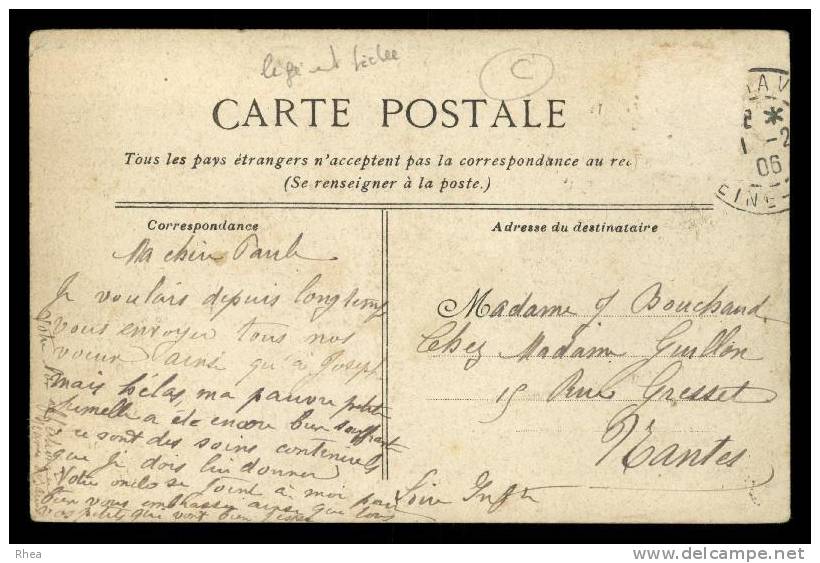 C
CARTE POSTALE
Tous les pays étrangers n'acceptent pas la correspondance au rec
(Se renseigner à la poste.)
2 *
1 -2
06
Correspondance
Adresse du destinataire
Ma chère Paule
Je voulais depuis longtemps
vous envoyer tous nos
voeux ainsi qu'à Joseph
mais hélas ma pauvre petite
jumelle a été encore bien souffrante
ce sont des soins continuels
que je dois lui donner
Votre oncle se joint à moi pour
bien vous embrasser ainsi que tous
vos petits qui vont bien
Madame J Bouchaud
Chez Madame Guillon
15 Rue Gresset
Nantes
Loire Infre
Rhea
www.delcampe.net